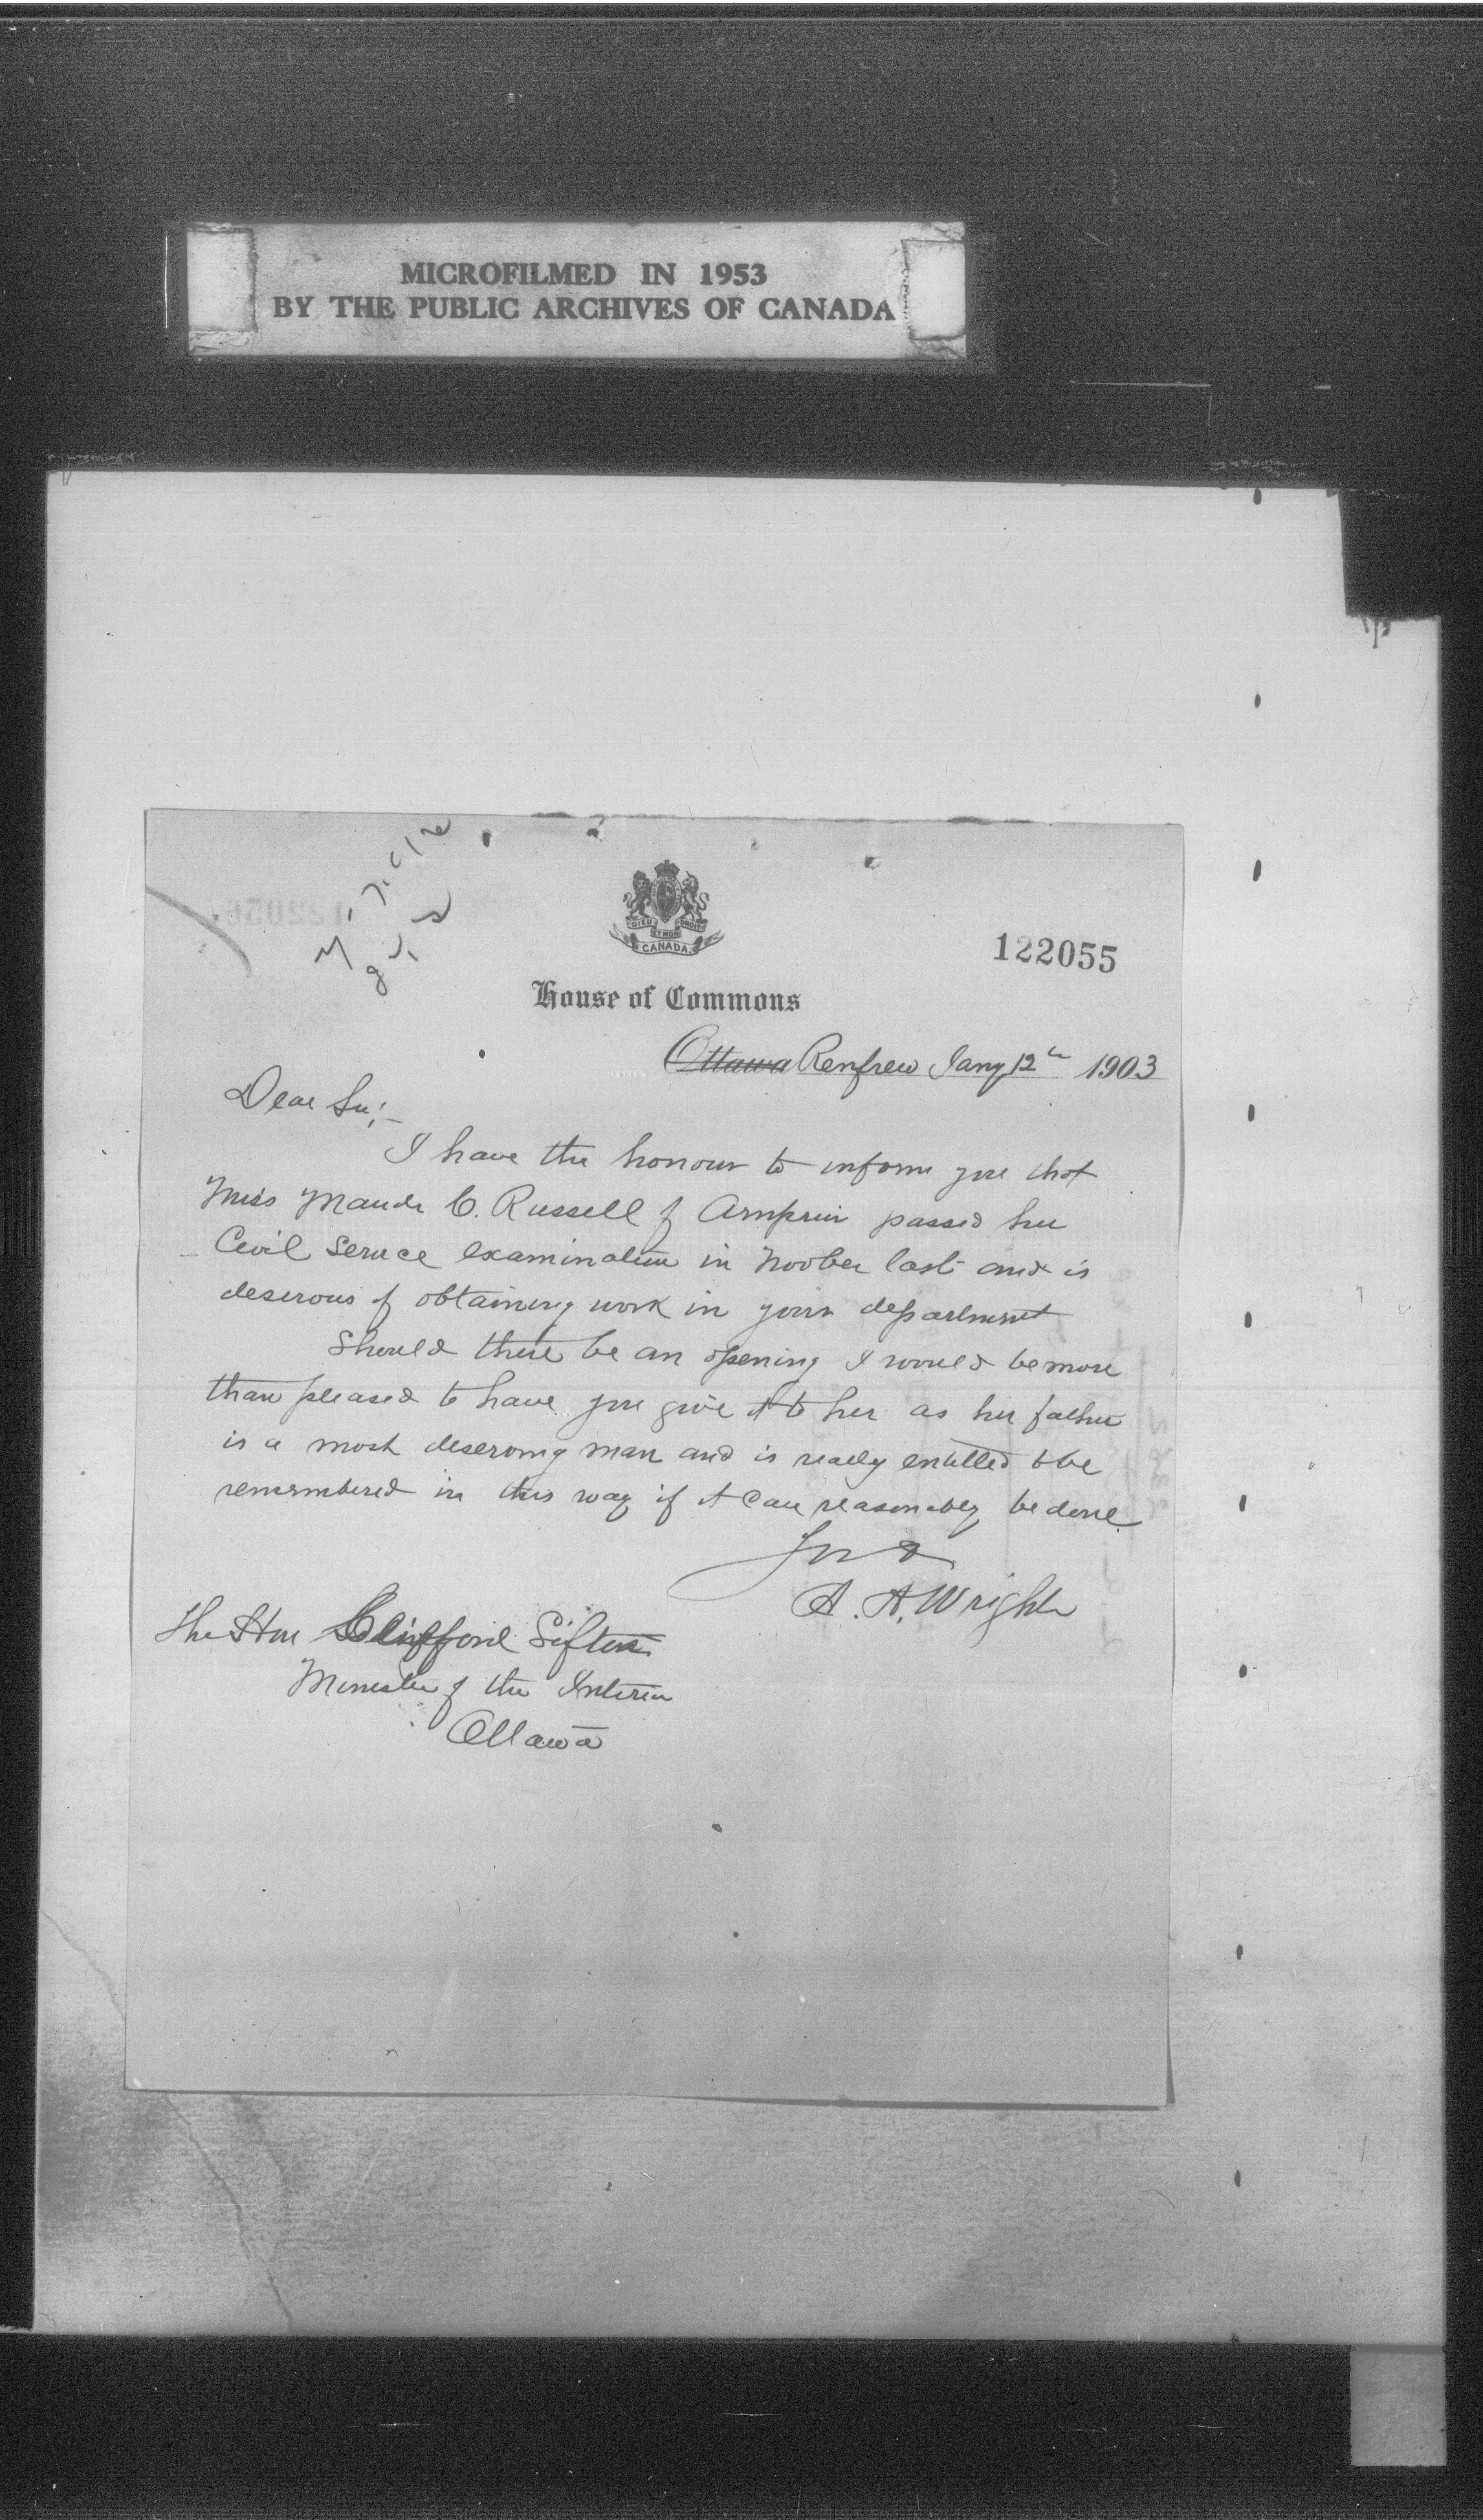 MICROFILMED IN 1953
BY THE PUBLIC ARCHIVES OF CANADA
DIEU ET MON DROIT
CANADA
122055
House of Commons
Ottawa Renfrew Jany 12th 1903
Dear Sir:-
I have the honour to inform you that
Miss Maude C. Russell of Arnprior passed her
Civil Service examination in Novber last and is
deserous of obtaining work in your department
Should there be an opening I would be more
than pleased to have you give it to her as her father
is a most deserving man and is really entitled to be
remembered in this way if it can reasonably be done.
A. A. Wright
The Hon Clifford Sifton
Minister of the Interior
Ottawa